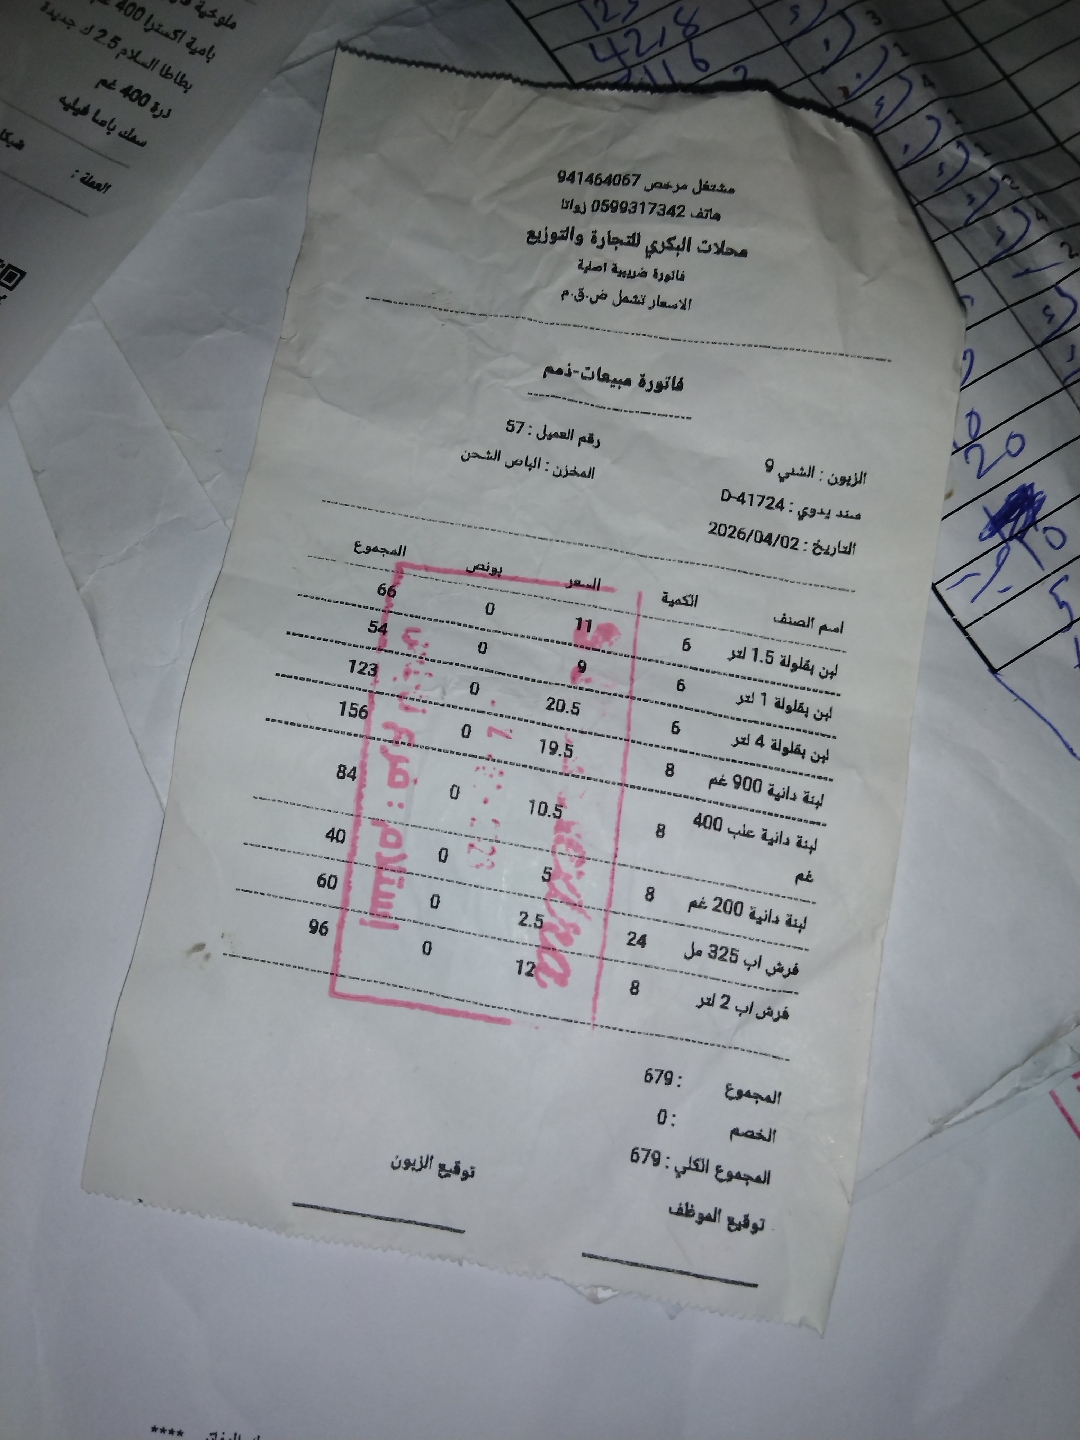 مشتغل مرخص 941464067
هاتف 0599317342 زواتا
محلات البكري للتجارة والتوزيع
فاتورة ضريبية اصلية
الاسعار تشمل ض.ق.م
فاتورة مبيعات-ذمم
الزبون : الشني 9 رقم العميل : 57
سند يدوي : D-41724 المخزن : الباص الشحن
التاريخ : 2026/04/02
اسم الصنف الكمية السعر بونص المجموع
لبن بقلولة 1.5 لتر 6 11 0 66
لبن بقلولة 1 لتر 6 9 0 54
لبن بقلولة 4 لتر 6 20.5 0 123
لبنة دانية 900 غم 8 19.5 0 156
لبنة دانية علب 400 8 10.5 0 84
غم
لبنة دانية 200 غم 8 5 0 40
فرش اب 325 مل 24 2.5 0 60
فرش اب 2 لتر 8 12 0 96
المجموع : 679
الخصم : 0
المجموع الكلي : 679
توقيع الموظف توقيع الزبون
إستلام :
بامية اكسترا 400
بطاطا السلام 2.5 ك جديدة
ذرة 400 غم
سمك باسا فيليه
العملة :
20
****